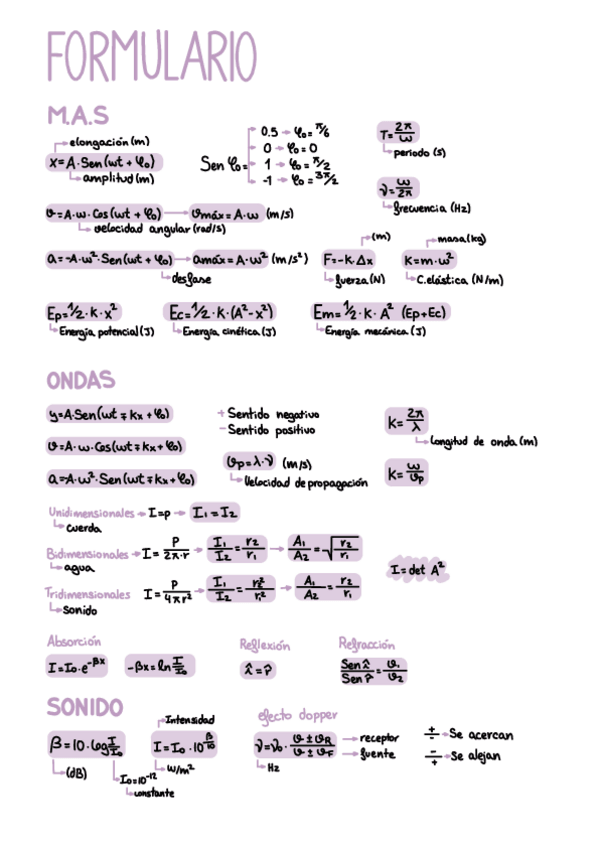 FORMULARIO
M.A.S
elongación (m)
x=A·Sen(wt + φ₀)
amplitud (m)
Sen φ₀=
0.5 → φ₀= π/6
0 → φ₀= 0
1 → φ₀= π/2
-1 → φ₀= 3π/2
T= 2π/ω
periodo (s)
ν= ω/2π
frecuencia (Hz)
v=A·w·Cos(wt + φ₀) → vmáx= A·w (m/s)
velocidad angular (rad/s)
a=-A·w²·Sen(wt + φ₀) → amáx= A·w² (m/s²)
desfase
(m)
F=-K·Δx
fuerza (N)
masa (kg)
K=m·w²
C.elástica (N/m)
Ep=1/2·K·x²
Energía potencial (J)
Ec=1/2·K·(A²-x²)
Energía cinética (J)
Em=1/2·K·A² (Ep+Ec)
Energía mecánica (J)
ONDAS
y=A·Sen(wt ∓ kx + φ₀)
+ Sentido negativo
- Sentido positivo
K= 2π/λ
longitud de onda (m)
v=A·w·Cos(wt ∓ kx + φ₀)
vp=λ·ν (m/s)
Velocidad de propagación
a=-A·w²·Sen(wt ∓ kx + φ₀)
K= ω/vp
Unidimensionales → I=P → I₁ = I₂
cuerda
Bidimensionales → I= P/2π·r → I₁/I₂ = r₂/r₁ → A₁/A₂ = √r₂/r₁
agua
I= det A²
Tridimensionales I= P/4πr² → I₁/I₂ = r₂²/r₁² → A₁/A₂ = r₂/r₁
Sonido
Absorción
I=I₀·e^-βx
-βx=ln I/I₀
Reflexión
î=r̂
Refracción
Sen î/Sen r̂ = v₁/v₂
SONIDO
β=10·log I/I₀
(dB)
I₀=10⁻¹²
constante
Intensidad
I=I₀·10^β/10
W/m²
efecto dopper
ν=ν₀· v ± vR/v ± vF
receptor
fuente
Hz
+/- → Se acercan
-/+ → Se alejan